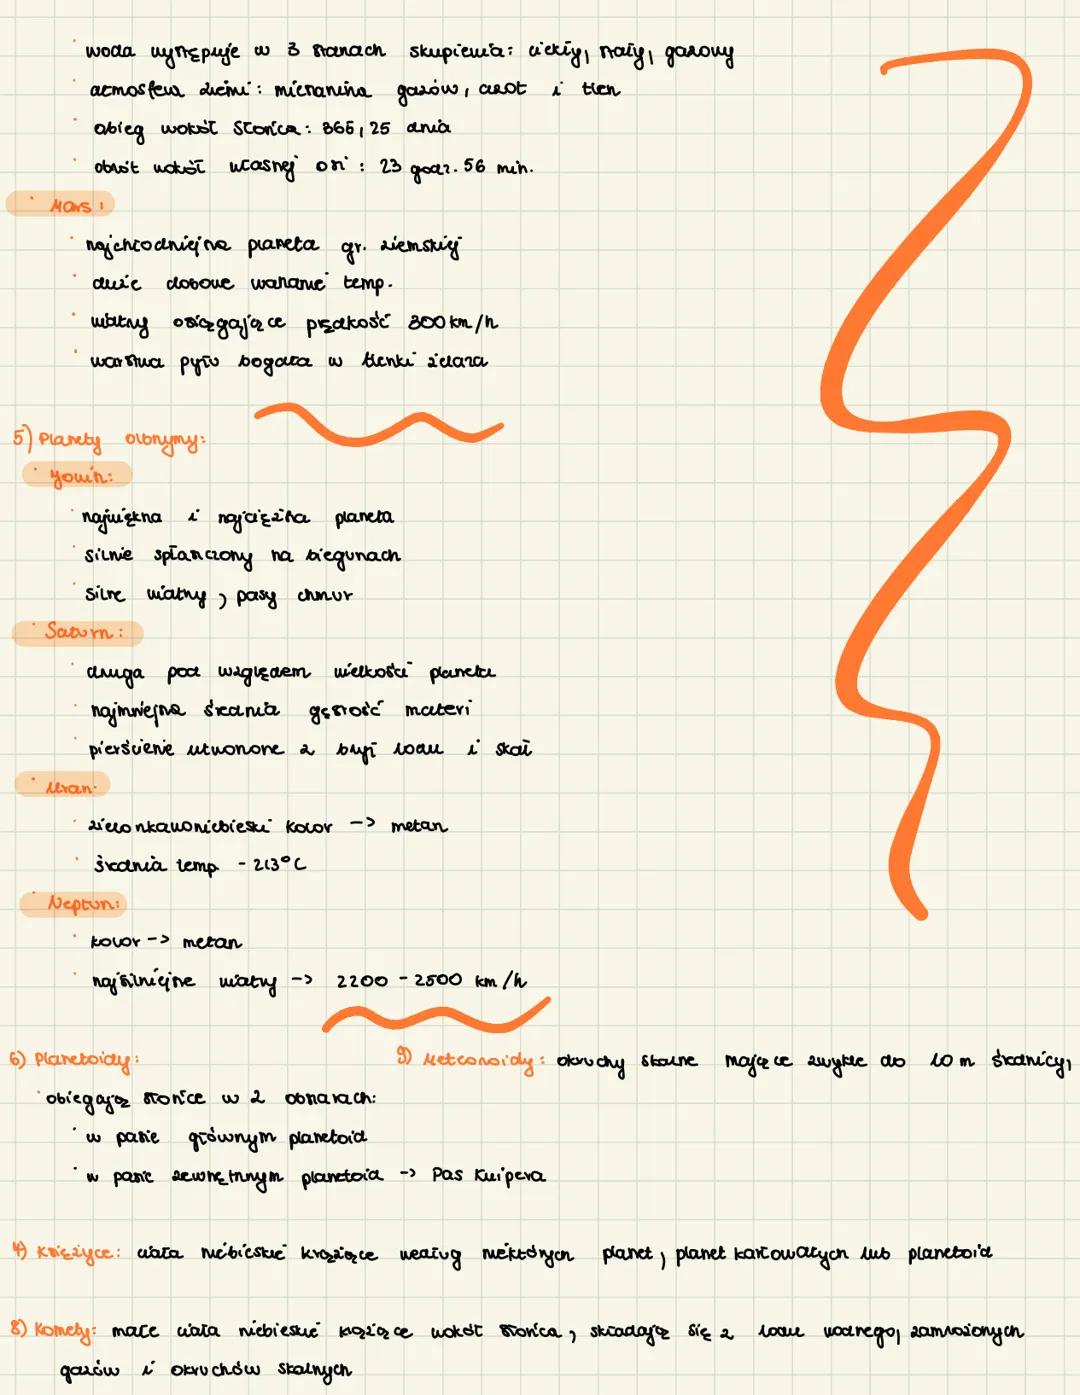 woda występuje w 3 stanach skupienia: ciekły, stały, gazowy
atmosfera ziemi: mieszanina gazów, azot i tlen
obieg wokół Słońca: 365,25 dnia
obrót wokół własnej osi: 23 godz. 56 min.
Mars:
najchłodniejsza planeta gr. ziemskiej
duże dobowe wahanie temp.
wiatry osiągające prędkość 300 km/h
warstwa pyłu bogata w tlenki żelaza
5) Planety olbrzymy:
Jowisz:
największa i najcięższa planeta
silnie spłaszczony na biegunach
silne wiatry, pasy chmur
Saturn:
druga pod względem wielkości planeta
najmniejsza średnia gęstość materi
pierścienie utworzone z brył lodu i skał
Uran:
zielonkawoniebieski kolor -> metan
średnia temp - 213°C
Neptun:
kolor -> metan
najsilniejsze wiatry -> 2200 - 2500 km/h
6) Planetoidy:
obiegają słońce w 2 obszarach:
w pasie głównym planetoid
w pasie zewnętrznym planetoid -> Pas Kuipera
9) Meteoroidy: okruchy skalne mające zwykle do 10 m średnicy,
7) Księżyce: ciała niebieskie krążące według niektórych planet, planet karłowatych lub planetoid
8) Komety: małe ciała niebieskie krążące wokół słońca, składają się z lodu wodnego, zamrożonych
gazów i okruchów skalnych